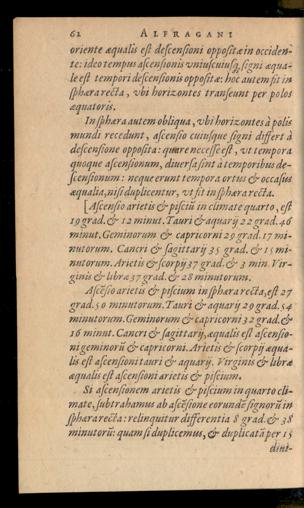 62 ALFRAGANI
oriente æqualis est descensioni oppositæ in occiden-
te: ideo tempus ascensionis vniuscuiusq; signi æqua-
le est tempori descensionis oppositæ: hoc autem fit in
sphæra recta, vbi horizontes transeunt per polos
æquatoris.
In sphæra autem obliqua, vbi horizontes à polis
mundi recedunt, ascensio cuiusque signi differt à
descensione opposita: quare necesse est, vt tempora
quoque ascensionum, diuersa sint à temporibus de-
scensionum: neque erunt tempora ortus & occasus
æqualia, nisi duplicentur, vt fit in sphæra recta.
[Ascensio arietis & pisciũ in climate quarto, est
19 grad. & 12 minut. Tauri & aquarij 22 grad. 46
minut. Geminorum & capricorni 29 grad. 17 mi-
nutorum. Cancri & sagittarij 35 grad. & 15 mi-
nutorum. Arietis & scorpij 37 grad. & 3 min. Vir-
ginis & libræ 37 grad. & 28 minutorum.
Ascẽsio arietis & piscium in sphæra recta, est 27
grad. 50 minutorum. Tauri & aquarij 29 grad. 54
minutorum. Geminorum & capricorni 32 grad. &
16 minut. Cancri & sagittarij, æqualis est ascensio-
ni geminorũ & capricorni. Arietis & scorpij æqua-
lis est ascensioni tauri & aquarij. Virginis & libræ
æqualis est ascensioni arietis & piscium.
Si ascensionem arietis & piscium in quarto cli-
mate, subtrahamus ab ascẽsione eorundẽ signorũ in
sphæra recta: relinquitur differentia 8 grad. & 38
minutorũ: quam si duplicemus, & duplicatã per 15
diui-